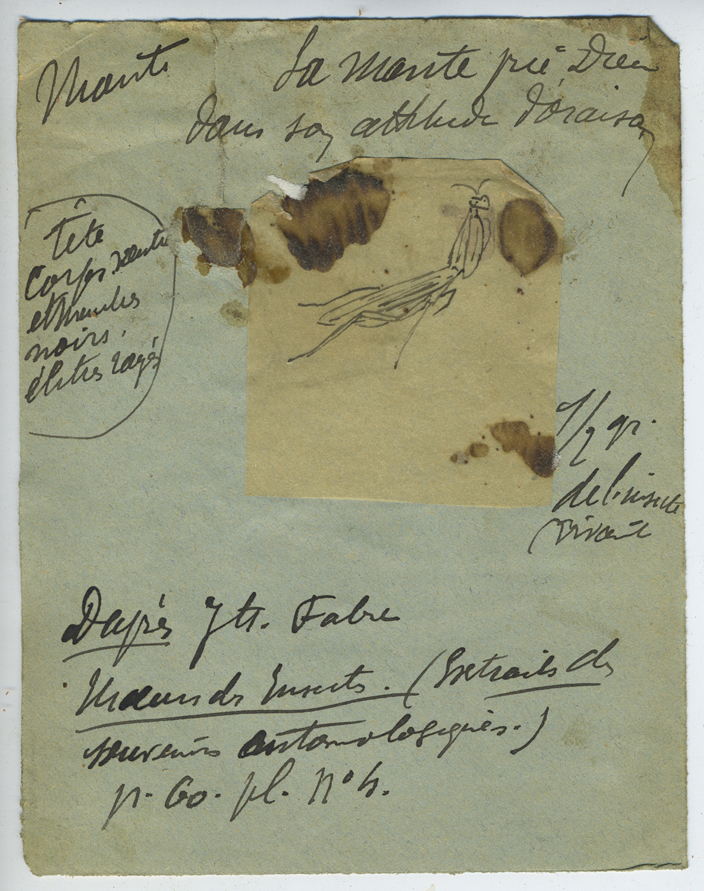 Mante
La mante prie Dieu
dans son attitude d'oraison
tête
Corps ventre
et
noirs,
élitres rayés
1/2 gr.
de l'insecte
vivant
D'après J h. Fabre
Mœurs des Insects. (Extraits des
souvenirs entomologiques.)
p. 60. pl. N° 4.